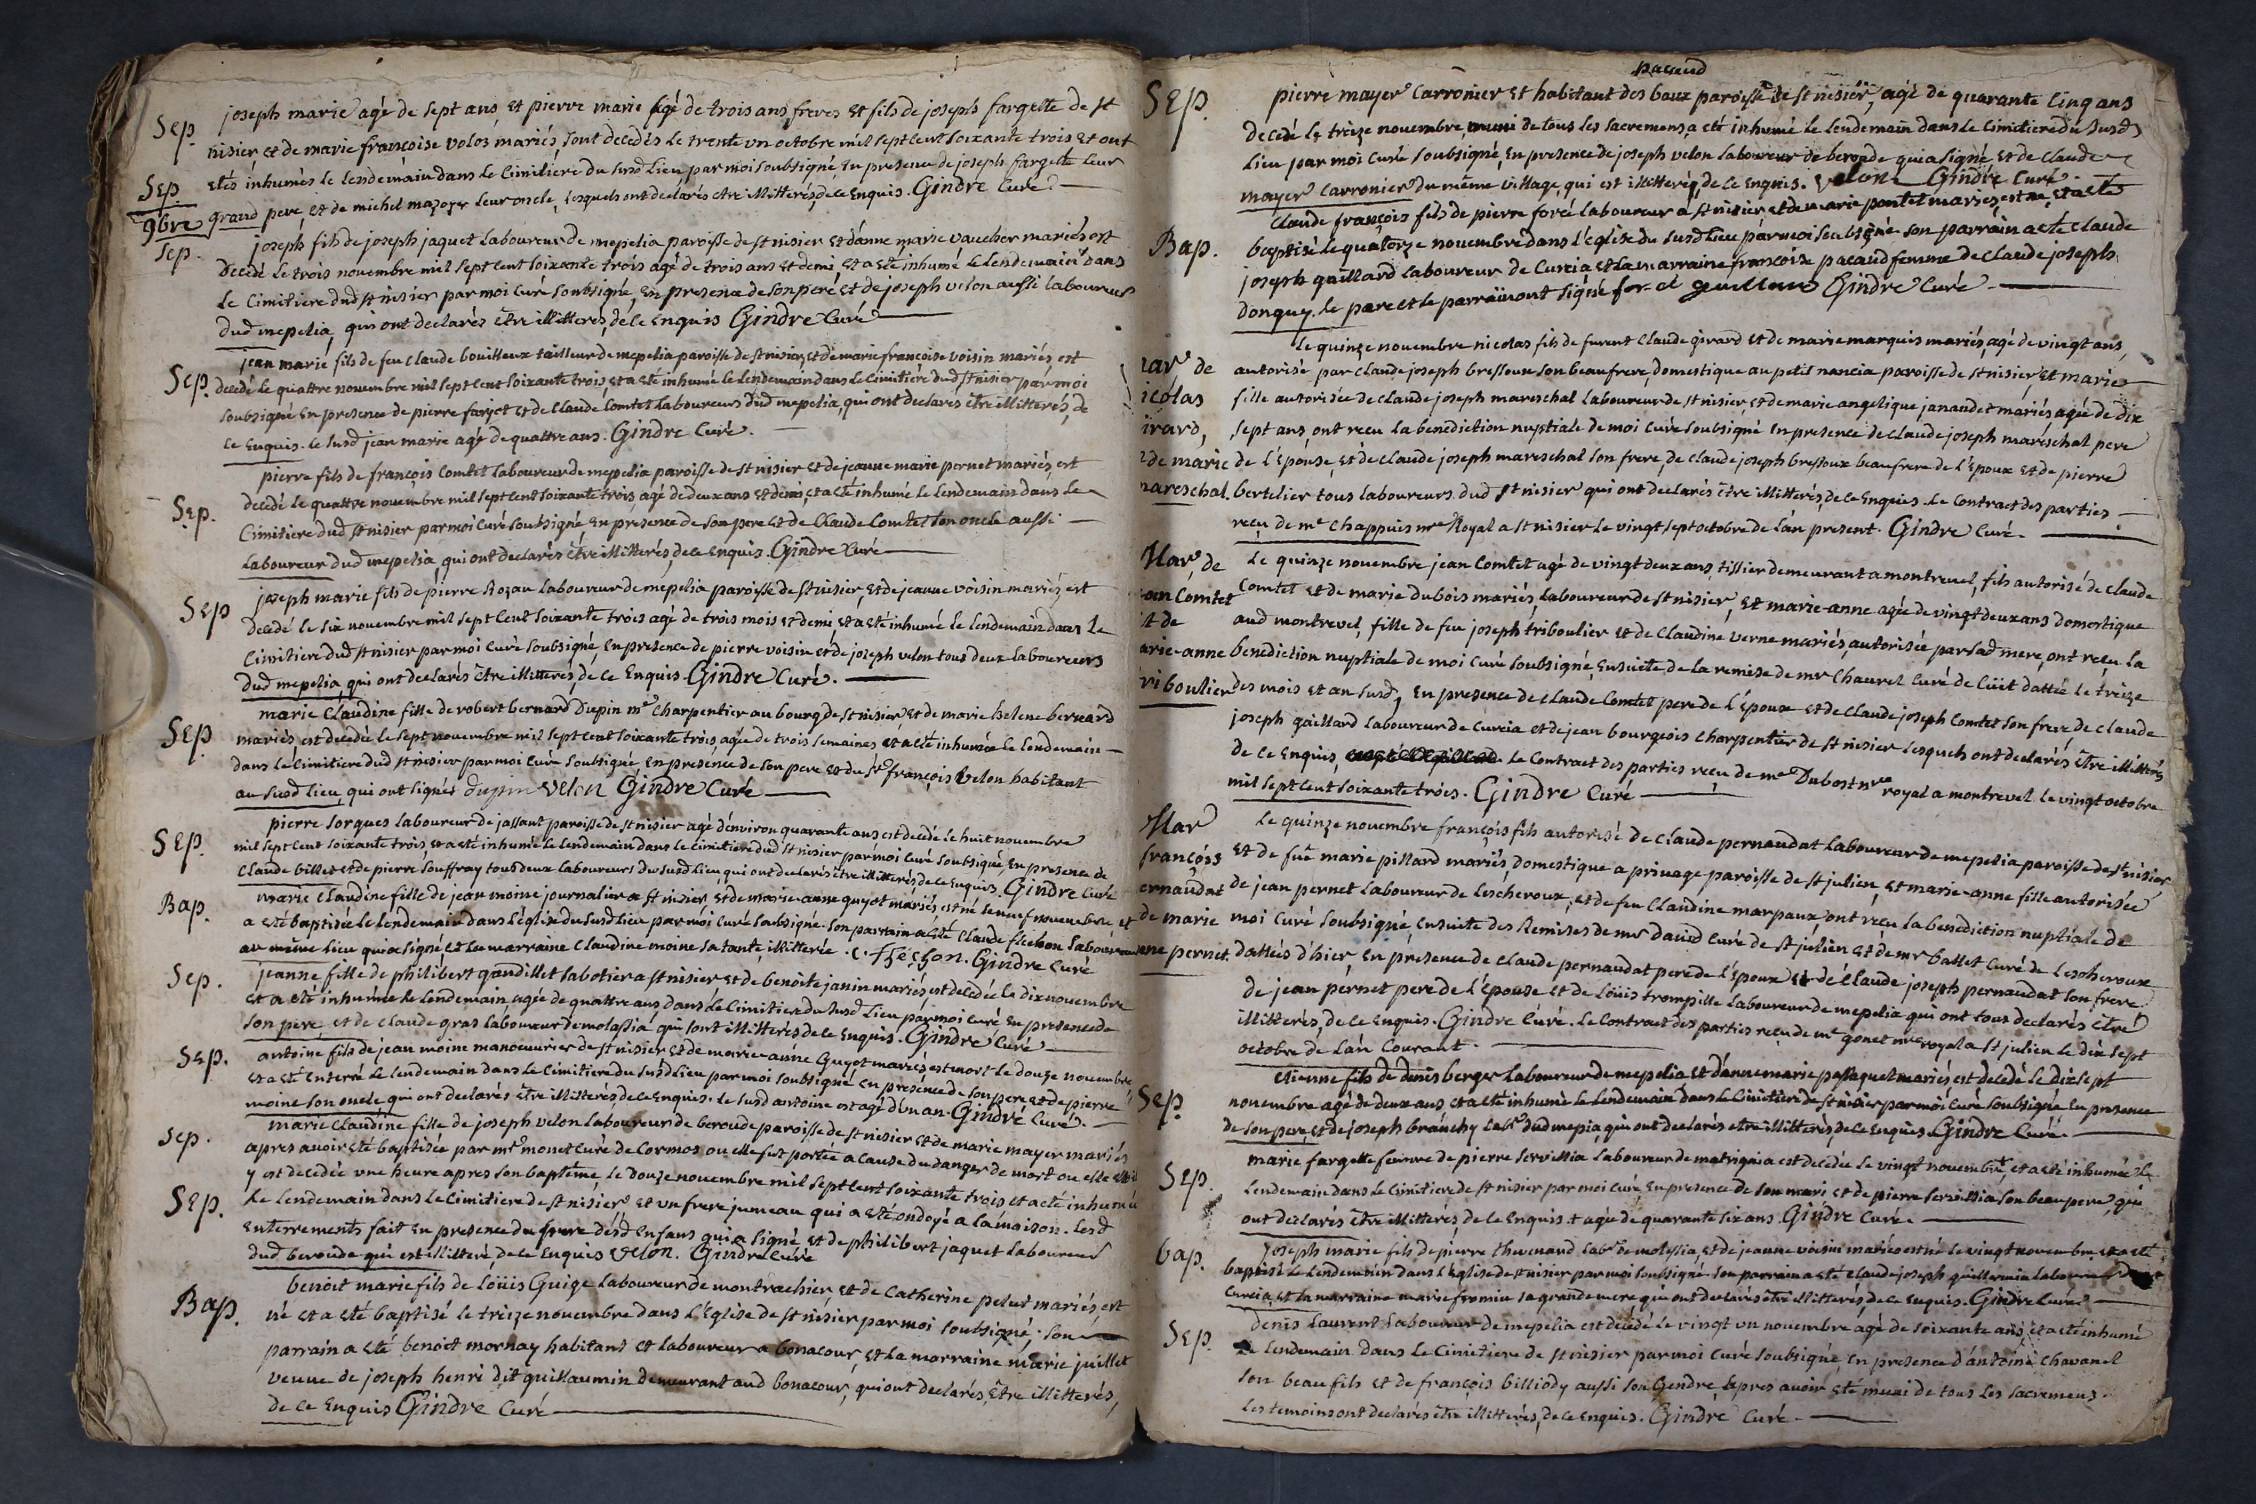 Sep. joseph marie agé de sept ans, et pierre marie agé de trois ans freres et fils de joseph fargette de st
nisier et de marie françoise volos mariés, sont decedés le trente un octobre mil sept cent soixante trois et ont
Sep. etés inhumés le lendemain dans le cimitiere du susd lieu par moi soubsigné en presence de joseph fargette leur
grand pere, et de michel mazoyer leur oncle, lesquels ont declarés etre illitterés, de ce enquis. Gindre curé.
9bre
Sep. joseph fils de joseph jaquet laboureur de mepelia paroisse de st nisier et d'anne marie vaucher mariés est
decedé le trois novembre mil sept cent soixante trois agé de trois ans et demi, et a eté inhumé le lendemain dans
le cimitiere dud st nisier par moi curé soubsigné, en presence de son peré et de joseph velon aussi laboureur
dud mepelia, qui ont declarés être illitterés, de ce enquis Gindre Curé
jean marie fils de feu claude bouilleux tailleur de mepelia paroisse de st nisier, et de marie françoise voisin mariés, est
Sep. decedé le quattre novembre mil sept cent soixante trois et a eté inhumé le lendemain dans le cimitiere dud st nisier par moi
soubsigné en presence de pierre farjet et de claude comtet laboureurs dud mepelia, qui ont declarés être illitterés, de
ce enquis. le susd jean marie agé de quattre ans. Gindre Curé.
pierre fils de françois comtet laboureur de mepelia paroisse de st nisier et de jeanne marie pernet mariés, est
Sep. decedé le quattre novembre mil sept cent soixante trois, agé de deux ans et demi, et a eté inhumé le lendemain dans le
cimitiere dud st nisier par moi curé soubsigné en presence de son pere et de claude comtet son oncle aussi
laboureur dud mepelia, qui ont declarés être illitterés, de ce enquis. Gindre Curé
Sep joseph marie fils de pierre Rozan laboureur de mepelia paroisse de st nisier, et de jeanne voisin mariés est
decedé le six novembre mil sept cent soixante trois agé de trois mois et demi et a eté inhumé le lendemain dans le
cimitiere dud st nisier par moi curé soubsigné, en presence de pierre voisin et de joseph velon tous deux laboureurs
dud mepelia, qui ont declarés être illitterés, de ce enquis. Gindre Curé.
marie Claudine fille de robert bernard Dupin me charpentier au bourg de st nisier et de marie helene bernard
Sep. mariés est decedée le sept novembre mil sept cent soixante trois, agée de trois semaines et a eté inhumée le lendemain
dans le cimitiere dud st nisier par moi curé soubsigné, en presence de son pere et du sr françois velon habitant
au susd lieu, qui ont signés dupin velon Gindre Curé
pierre sorgues laboureur de jassant paroisse de st nisier agé d'environ quarante ans est decedé le huit novembre
Sep. mil sept cent soixante trois, et a eté inhumé le lendemain dans le cimitiere dud st nisier par moi curé soubsigné, en presence de
claude billet et de pierre souffray tous deux laboureurs du susd lieu, qui ont declarés être illitterés, de ce enquis. Gindre Curé
Bap. marie claudine fille de jean moine journalier a st nisier et de marie-anne guyot mariés, est né le neuf novembre et
a eté baptisée le lendemain dans l'eglise du susd lieu par moi curé soubsigné. son parrain a eté claude flechon laboureur
au même lieu qui a signé et la marraine claudine moine sa tante, illitterée. c. flechon. Gindre Curé
Sep. jeanne fille de philibert gaudillet sabotier a st nisier et de benoite janin mariés est decedée le dix novembre
et a eté inhumée le lendemain, agée de quattre ans dans le cimitiere du susd lieu par moi curé en presence de
son pere, et de claude gras laboureur de molassia qui sont illitterés, de ce enquis. Gindre Curé
Sep. antoine fils de jean moine manoeuvrier de st nisier et de marie-anne guyot mariés est mort le douze novembre
et a eté enterré le lendemain dans le cimitiere du susd lieu par moi soubsigné en presence de son pere et de pierre
moine son oncle qui ont declarés etre illitterés de ce enquis. le susd antoine est agé d'un an. Gindre Curé.
Sep. marie claudine fille de joseph velon laboureur de beroude paroisse de st nisier et de marie mayer mariés
apres avoir eté baptisée par mr monet curé de cormos ou elle fut portée a cause du danger de mort ou elle
y est decedée une heure apres son baptême, le douze novembre mil sept cent soixante trois et a eté inhumée
Sep. le lendemain dans le cimitiere de st nisier, et un frere jumeau qui a eté ondoyé a la maison. lesd
enterrements fait en presence du frere desd enfans qui a signé et de philibert jaquet laboureur
dud beroude qui est illitteré, de ce enquis velon. Gindre Curé
Bap. benoit marie fils de Loüis Guige laboureur de montrachier, et de catherine pelut mariés, est
né et a eté baptisé le treize novembre dans l'Eglise de st nisier par moi soubsigné, son
parrain a eté benoit mornay habitant et laboureur a bonacour, et la marraine marie juillet
veuve de joseph henri dit guillaumin demeurant aud bonacour, qui ont declarés, être illitterés,
de ce enquis Gindre Curé
pacaud
Sep. pierre mayer carronier et habitant des baux paroisse de st nisier, agé de quarante cinq ans
decedé le treize novembre, muni de tous les sacremens, a eté inhumé le lendemain dans le cimitiere du susd
lieu par moi curé soubsigné, en presence de joseph velon laboureur de beroude qui a signé et de claude
mayer carronier du même village, qui est illitteré, de ce enquis. velon Gindre Curé.
Claude françois fils de pierre foré laboureur a st nisier, et de marie pontet mariez, est né, et a eté
Bap. baptisé le quatorze novembre dans l'eglise du susd lieu par moi soubsigné son parrain a eté claude
joseph gaillard laboureur de curcia et la marraine françoise pacaud femme de claude joseph
donguy. le pere et le parrain ont signé gaillard Gindre Curé
le quinze novembre nicolas fils de furent claude girard et de marie marquis mariés, agé de vingt ans,
mar. de autorisé par claude joseph bressoux son beaufrere, domestique au petit nancia paroisse de st nisier et marie
nicolas fille autorisée de claude joseph mareschal laboureur de st nisier, et de marie angelique janandet mariés, agée de dix
girard, sept ans, ont recu la benediction nuptiale de moi curé soubsigné en presence de claude joseph mareschal pere
de marie de l'epouse, et de claude joseph mareschal son frere, de claude joseph bressoux beaufrere de l'epoux et de pierre
mareschal. bertelier tous laboureurs dud st nisier qui ont declarés être illitterés, de ce enquis. le contract des parties
reçu de me chappuis nre Royal a st nisier le vingt sept octobre de l'an present. Gindre Curé.
Mar. de Le quinze novembre jean comtet agé de vingt deux ans, tissier demeurant a montrevel, fils autorisé de claude
jean Comtet comtet et de marie dubois mariés, laboureur de st nisier, et marie-anne agée de vingt deux ans domestique
et de aud montrevel, fille de feu joseph triboulier et de claudine verne mariés, autorisée par sad mere, ont reçu la
marie-anne benediction nuptiale de moi curé soubsigné, ensuite de la remise de mr chaurel curé de cüet dattée le treize
triboulier des mois et an susd, en presence de claude comtet pere de l'époux et de claude joseph comtet son frere de claude
joseph gaillard laboureur de curcia et de jean bourgeois charpentier de st nisier lesquels ont declarés être illitterés
de ce enquis, le contract des parties reçu de me Dubost nre royal a montrevel le vingt octobre
mil sept cent soixante trois. Gindre Curé
Mar le quinze novembre françois fils autorisé de claude pernaudat laboureur de mepelia paroisse de st nisier
françois et de fuë marie pillard mariés, domestique a privage paroisse de st julien, et marie-anne fille autorisée
pernaudat de jean pernet laboureur de lescheroux, et de feu claudine marpaux ont reçu la benediction nuptiale de
de marie moi curé soubsigné, ensuite des remises de mr david curé de st julien et de mr ballet curé de lescheroux
anne pernet. dattées d'hier, en presence de claude pernaudat pere de l'epoux et de claude joseph pernaudat son frere
de jean pernet pere de l'épouse et de Loüis trompille laboureur de mepelia qui ont tous declarés être
illitterés, de ce enquis. Gindre Curé. le contract des parties reçu de me gonet nre royal a st julien le dix sept
octobre de l'an courant.
etienne fils de denis berger laboureur de mepelia et d'anne marie passaquet mariés est decedé le dix sept
Sep. novembre agé de deux ans et a eté inhumé le lendemain dans le cimitiere de st nisier par moi curé soubsigné, en presence
de son pere, et de joseph branchy labr dud mepia qui ont declarés etre illitterés, de ce enquis. Gindre Curé.
marie fargette femme de pierre servillia laboureur de matrignia est decedée le vingt novembre, et a eté inhumée le
Sep. lendemain dans le cimitiere de st nisier par moi curé, en presence de son mari et de pierre servillia son beau pere, qui
ont declarés être illitterés de ce enquis. + agée de quarante six ans. Gindre Curé.
bap. joseph marie fils de pierre thevenard labr de molassia, et de jeanne voisin mariés est né le vingt novembre, et a eté
baptisé le lendemain dans l'eglise de st nisier par moi soubsigné. son parrain a eté claude joseph guillermin laboureur
curcia, et la marraine marie fromin sa grande mere qui ont declarés être illitterés, de ce enquis. Gindre Curé
Sep. denis Laurent laboureur de mepelia est decedé le vingt un novembre agé de soixante ans, et a eté inhumé
le lendemain dans le cimitiere de st nisier par moi curé soubsigné en presence d'antoine chavanel
son beau fils et de françois billiody aussi son gendre, apres avoir eté muni de tous les sacremens.
les temoins ont declarés être illitterés, de ce enquis. Gindre Curé.